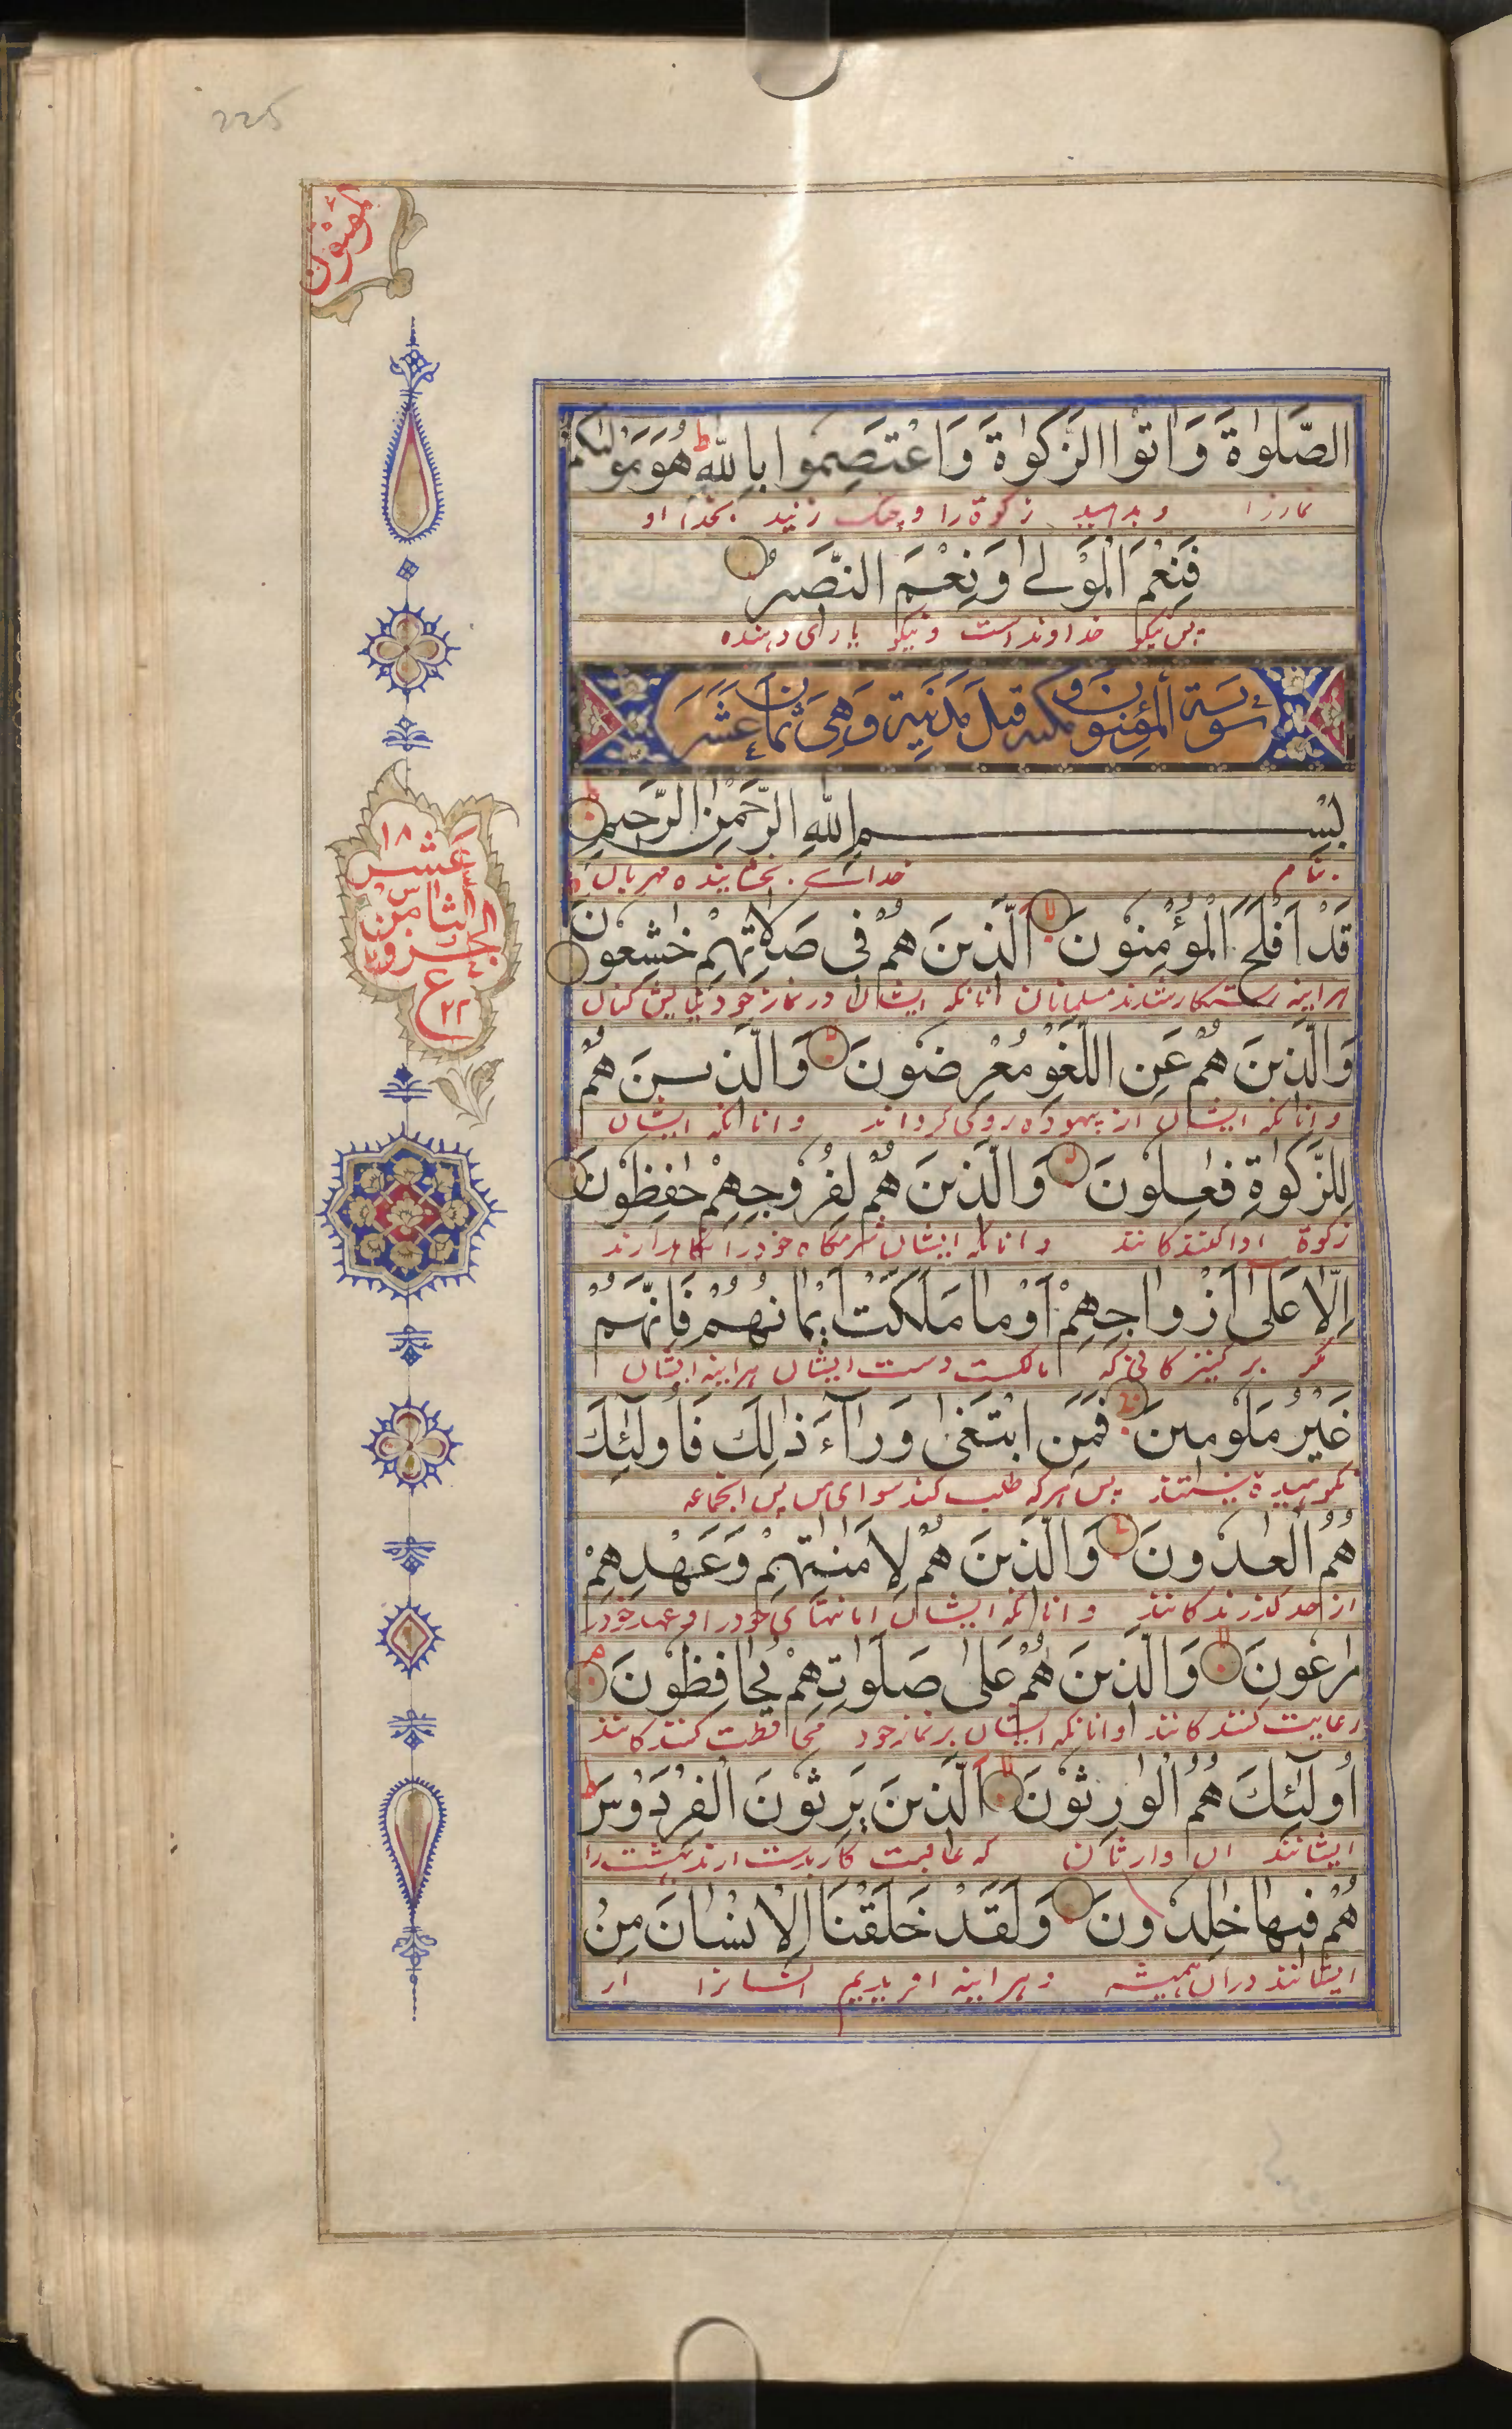 225
مؤمنون
الصَّلٰوةَ وَاٰتُوا الزَّكٰوةَ وَاعْتَصِمُوا بِاللّٰهِ ط هُوَ مَوْلٰىكُمْ
نمازرا و بدهید زکوة را و چنک زنید بخدا او
فَنِعْمَ الْمَوْلٰى وَنِعْمَ النَّصِيرُ
پس نیکو خداوند است و نیکو یاری دهنده
سورة المؤمنون مكية و قيل مدنية وهي ثمان عشر
بِسْمِ اللّٰهِ الرَّحْمٰنِ الرَّحِيمِ
بنام خدای بخشاینده مهربان
قَدْ اَفْلَحَ الْمُؤْمِنُونَ لا اَلَّذِينَ هُمْ فِى صَلَاتِهِمْ خٰشِعُونَ
هراینه رستکار شدند مسلمانان انانکه ایشان در نماز خود
وَالَّذِينَ هُمْ عَنِ اللَّغْوِ مُعْرِضُونَ لا وَالَّذِينَ هُمْ
وانانکه ایشان از بیهوده روی کردانند وانانکه ایشان
لِلزَّكٰوةِ فٰعِلُونَ لا وَالَّذِينَ هُمْ لِفُرُوجِهِمْ حٰفِظُونَ
زکوة اداکنندکانند وانانکه ایشان شرمکاه خودرا نکاهدارند
اِلَّا عَلٰى اَزْوَاجِهِمْ اَوْ مَا مَلَكَتْ اَيْمَانُهُمْ فَاِنَّهُمْ
مکر بر کنیزکانی که مالکست دست ایشان هراینه ایشان
غَيْرُ مَلُومِينَ فَمَنِ ابْتَغٰى وَرَآءَ ذٰلِكَ فَاُولٰٓئِكَ
نکوهیده نیستند پس هرکه طلب کند سوای پس انجماعه
هُمُ الْعٰدُونَ وَالَّذِينَ هُمْ لِاَمٰنٰتِهِمْ وَعَهْدِهِمْ
از حد کذرندکانند وانانکه ایشان امانتهای خودرا و عهد خودرا
رَاعُونَ لا وَالَّذِينَ هُمْ عَلٰى صَلَوٰتِهِمْ يُحَافِظُونَ م
رعایت کنندکانند وانانکه ایشان بر نماز خود محافظت کنندکانند
اُولٰٓئِكَ هُمُ الْوٰرِثُونَ لا اَلَّذِينَ يَرِثُونَ الْفِرْدَوْسَ ط
ایشانند ان وارثان که عاقبت کار بدست ارند بهشت را
هُمْ فِيهَا خٰلِدُونَ وَلَقَدْ خَلَقْنَا الْاِنْسَانَ مِنْ
ایشانند دران همیشه و هراینه افریدیم انسانرا از
١٨
عشر
الثامن
الجزو
ع